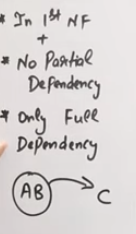 * In 1st NF
+
* No Partial
Dependency
* Only Full
Dependency
AB → C